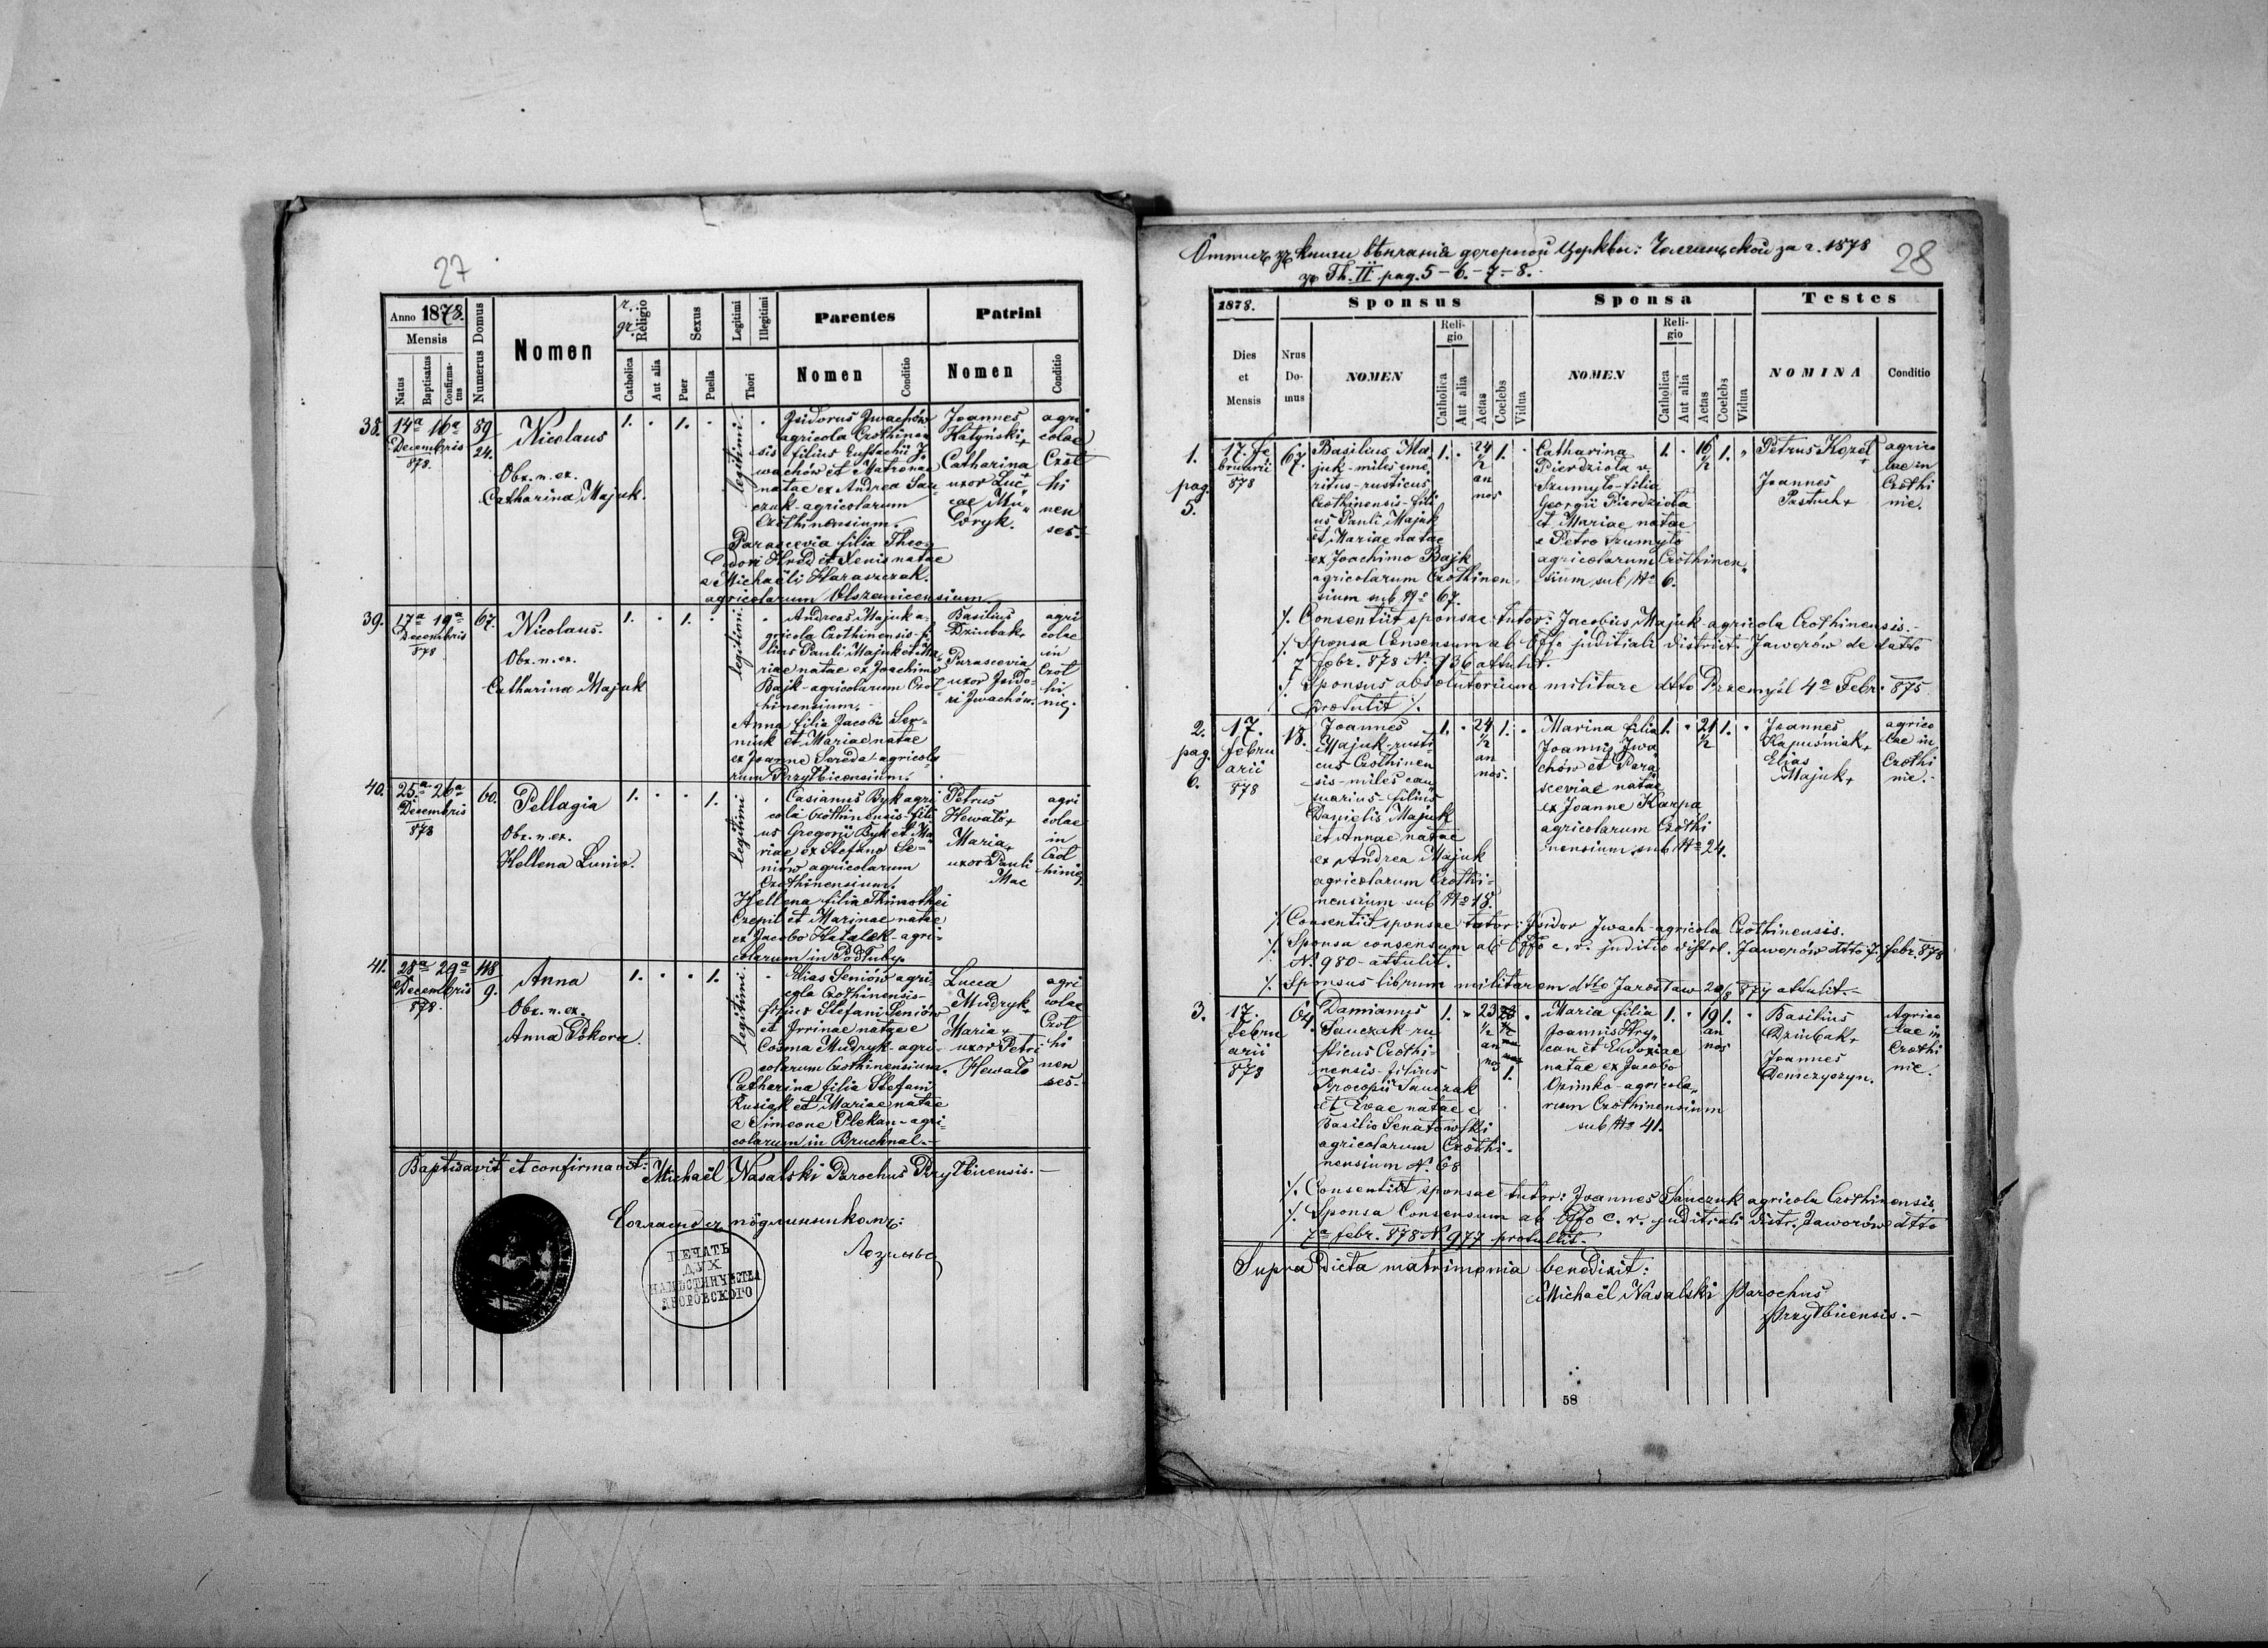 27
Anno 1878.
Mensis
Natus
Baptisatus
Confirmatus
Numerus Domus
Nomen
r. gr. Religio
Catholica
Aut alia
Sexus
Puer
Puella
Legitimi
Illegitimi
Thori
Parentes
Nomen
Conditio
Patrini
Nomen
Conditio
38. 14a 16a Decembris 878. 89/24.
Nicolaus
Obs. n. ex.
Catharina Majuk.
1. . 1. .
legitimi
Isidorus Iwachów
agricola Czołhinen
sis filius Eustachii I
wachów et Matronae
natae ex Andrea Sau
czuk - agricolarum
Czołhinensium.
Parascevia filia Theo
dori Hred et Xenis natae
e Michaëli Haraszczak.
agricolarum Olszanicensium
Joannes
Hatyński,
Catharina
uxor Luc
cae Mu
dryk.
agri
colae
Czoł
hi
nen
ses.
39. 17a 19a Decembris 878 67.
Nicolaus.
Obs. n. ex.
Catharina Majuk
1. . 1. .
legitimi
Andreas Majuk a-
gricola Czołhinensis - fi
lius Pauli Majuk et Ma
riae natae ex Joachimo
Bajk - agricolarum Czoł
hinensium.
Anna filia Jacobi Sen-
niuk et Mariae natae
ex Joanne Sereda - agricola
rum Przyłbicensium.
Basilius
Dziubak+
Parascevia
uxor Isido-
ri Iwachów.
agri
colae
in
Czoł
hi
nie.
40. 25.a 26a Decembris 878 60.
Pellagia
Obs. n. ex.
Hellena Luniw.
1. . . 1.
legitimi
Casianus Byk agri
cola Czołhinensis - fili
us Gregorii Byk et Ma
riae ex Stefano Se-
niów agricolarum
Czołhinensium.
Hellena filia Thimothei
Czepil et Marinae natae
ex Jacobo Hatalek - agri-
colarum in Podłuby.
Petrus
Hewało+
Maria+
uxor Pauli
Mac
agri
colae
in
Czoł
hinie.
41. 28a 29a Decembris 878. 118/9.
Anna
Obs. n. ex.
Anna Pokora
1. . . 1.
legitimi
Elias Seniów agri
cola Czołhinensis -
filius Stefani Seniów
et Irrinae natae e
Cosma Mudryk - agri-
colarum Czołhinensium.
Catharina filia Stefani
Rusiak et Mariae natae
e Simeone Plekan - agri-
colarum in Bruchnal.
Lucca
Mudryk+
Maria+
uxor Petri
Hewało
agri
colae
Czoł
hi
nen
ses.
Baptisavit et confirmavit: Michaël Nasalski Parochus Przyłbicensis. -
ПЕЧАТЬ
ДУХ
НАМѢСТНИЧЕСТВА
ЯВОРОВСКОГО
28
за г. 1878
Th. II pag. 5 - 6. - 7 - 8.
1878.
Sponsus
Sponsa
Testes
Dies et Mensis
Nrus Domus
NOMEN
Religio
Catholica
Aut alia
Aetas
Coelebs
Vidua
NOMEN
Religio
Catholica
Aut alia
Aetas
Coelebs
Vidua
NOMINA
Conditio
1. pag. 5.
17. Fe
bruarii
878
67.
Basilius Ma
juk - miles eme
ritus - rusticus
Czołhinensis - fili
us Pauli Majuk
et Mariae natae
ex Joachimo Bajk
agricolarum Czołhinen-
sium sub No 67.
1. . 24 1/2 an nos 1. .
Catharina
Pierdziola v.
Szumyło - filia
Georgii Pierdziola
et Mariae natae
e Petro Szumyło
agricolarum Czołhinen
sium sub No 6.
1. . 16 1/2 1.
Petrus Kozeł+
Joannes
Pastuch+
agrico
lae in
Czołhi
nie.
/. Consentiit sponsae tutor: Jacobus Majuk agricola Czołhinensis. -
/. Sponsa Consensum ab Offo juditiali district. Jaworów de datto
7 febr. 878 N. 936 attulit.
/. Sponsus absolutorium militare dtto Przemyśl 4a Febr. 875
protulit /.
2. pag. 6.
17.
febru
arii
878
18.
Joannes
Majuk - rusti
cus Czołhinen
sis - miles cau
suarius - filius
Danielis Majuk
et Annae natae
ex Andrea Majuk
agricolarum Czołhi-
nensium sub No 18.
1. . 24 1/2 an nos. 1. .
Marina filia
Joannis Iwa
chów et Para
sceviae natae
ex Joanne Karpa
agricolarum Czołhi
nensium sub No 24.
1. . 21 1/2 1. .
Joannes
Kapuśniak+
Elias
Majuk+
agrico
lae in
Czołhi
nie. -
/. Consentiit sponsae tutor: Isidor Iwach - agricola Czołhinensis.
/. Sponsa consensum ab Offo c. r. juditio distrl. Jaworów dtto 7. febr. 878
N. 980 - attulit.
/. Sponsus librum militarem dtto Jarosław 20/8 874 attulit. -
3.
17.
Febru
arii
878
64.
Damianus
Sauczak ru
sticus Czołhi-
nensis - filius
Procopii Sauczak
et Evae natae e
Basilio Senatowski
agricolarum Czołhi-
nensium N. 68
1. . 23 1/2 an nos 1. .
Maria filia
Joannis Hry
can et Eudoxiae
natae ex Jacobo
Ozimko - agricola
rum Czołhinensium
sub No 41.
1. . 19 an nos 1. .
Basilius
Dziubak+
Joannes
Demczyszyn.
Agrico
lae in
Czołhi
nie.
/. Consentiit sponsae tutor: Joannes Sauczuk agricola Czołhinensis
/. Sponsa Consensum ab Offo c. r. juditiali distr. Jaworów dtto
7a febr. 878 N. 977 protullit. -
Supra dicta matrimonia benedixit:
Michaël Nasalski Parochus
Przyłbicensis. -
58